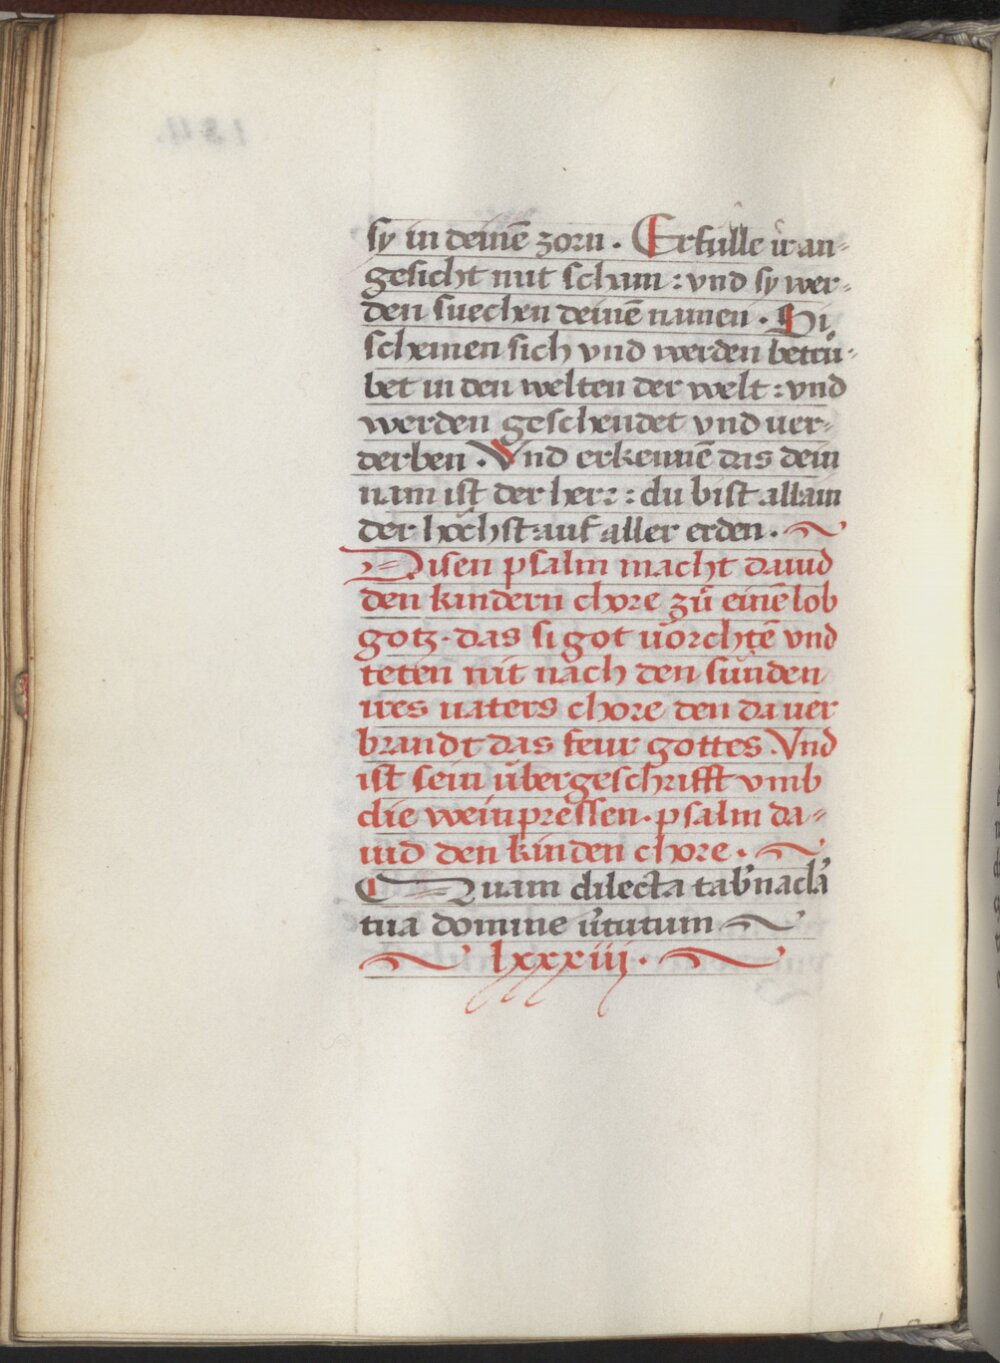 sy in deinē zorn . Erfulle ir an=
gesicht mit scham : vnd sy wer=
den suechen deinē namen . Si
schemen sich vnd werden betrů=
bet in den welten der welt : vnd
werden geschendet vnd uer=
derben . Vnd erkennē das dein
nam ist der herr : du bist allain
der höchst auf aller erden .
Disen psalm macht dauid
den kindern chore zů einē lob
gotz . das si got uorchtē vnd
teten nit nach den sunden
ires uaters chore den da uer
brandt das feur gottes . Vnd
ist sein übergeschrifft vmb
die weinpressen . psalm da=
uid den kinden chore .
Quam dilecta tab'nacla
tua domine u'tutum
lxxxiii .